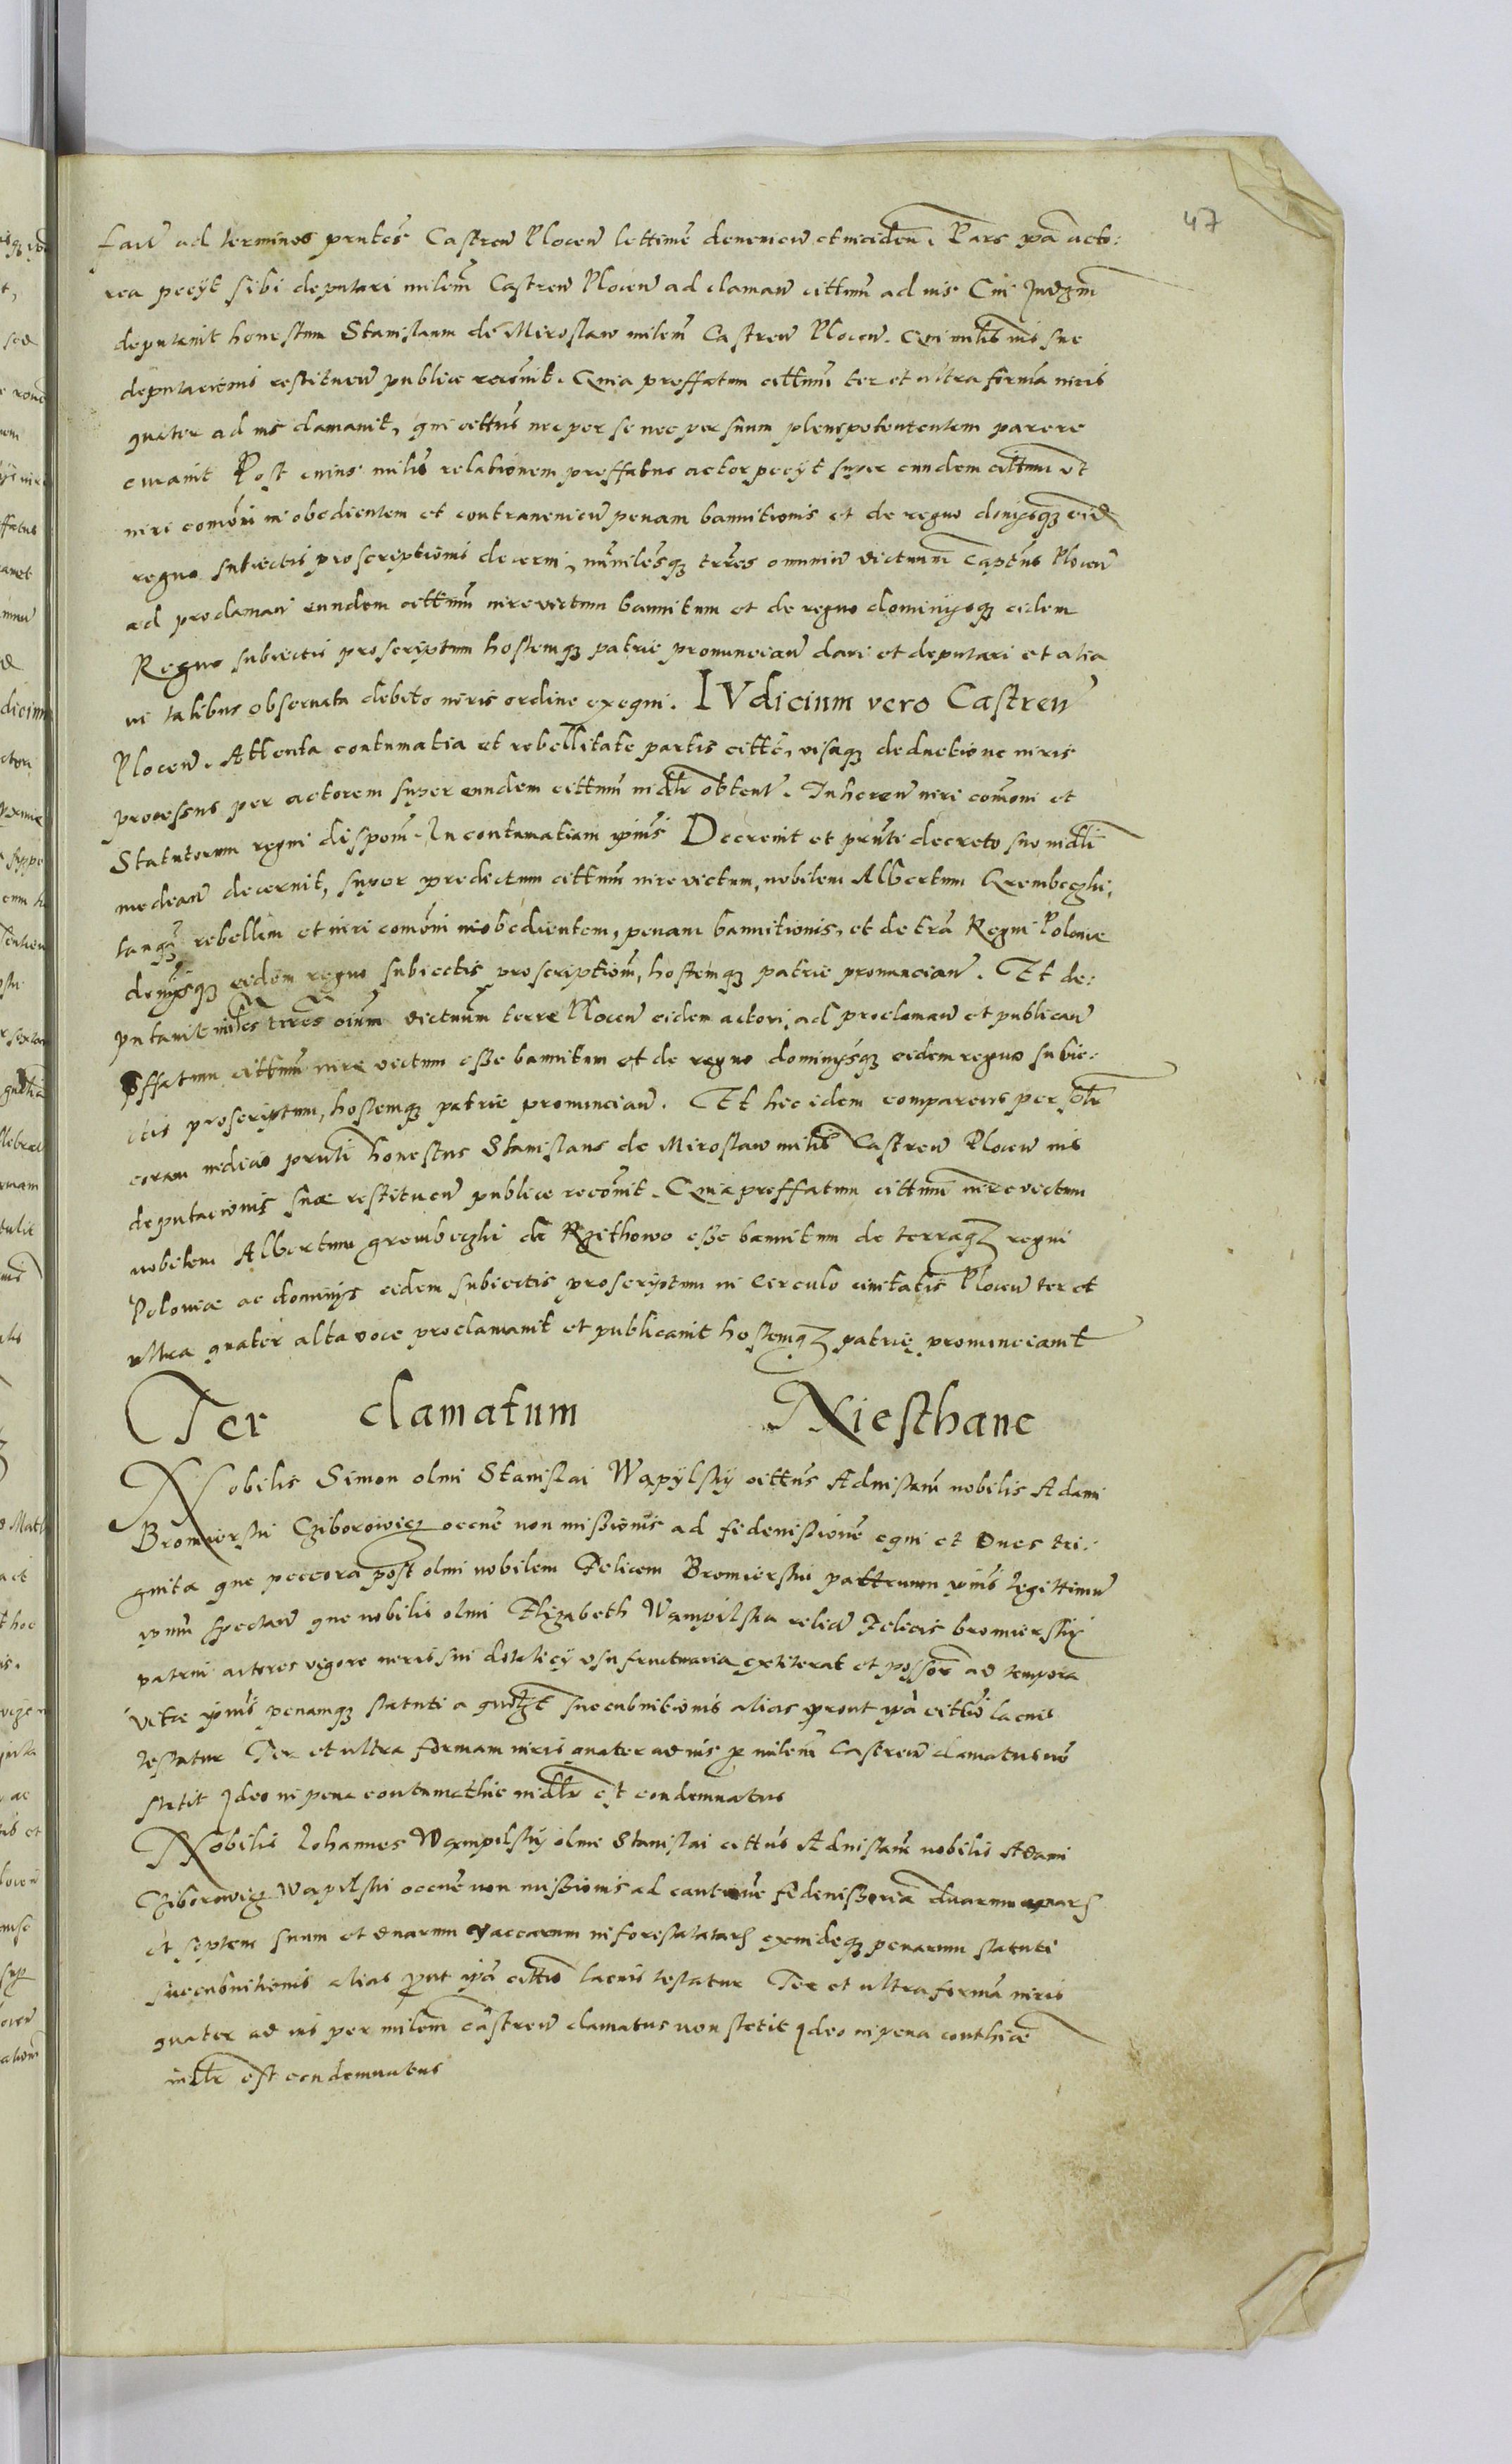 47
fact ad terminos prntes Castren Plocen lettime devenien et inciden. Pars ipa acto:
rea peciit sibi deputari milem Castren Plocen ad claman cittum ad ius Cui Judgm
deputavit honestum Stanislaum de Miroslaw milem Castren Plocen. Qui milis ius sue
deputacionis restituen publice recovit. Quia preffatum cittum ter et ultra forma iuris
quater ad ius clamavit, qui cittus nec per se nec per suum plenipotententem parere
curavit Post cuius milis relationem preffatus actor peciit super eundem cittum ut
iuri comuni inobedientem et contravenien penam bannitionis et de regno dominysq eid
regno subiectis proscriptionis decerni, mmilesq trres omnium districtuum Captus Plocen
ad proclaman eundem cittum iurevictum bannitum et de regno dominysq eidem
Regno subiectis proscriptum hostemq patrie pronuncian dari et deputari et alia
in talibus observata debito iuris ordine exequi. IVdicium vero Castren
Plocen. Attenta contumatia et rebellitate partis citte, visaq deductione iuris
processus per actorem super eundem cittum iudlr obtent. Inheren iuri comoni et
Statutorum regni dispom. In contumatiam ipius Decrevit et prnti decreto suo iudli
median decernit, super predictum cittum iurevictum, nobilem Albertum Grembeczki,
tanq rebellem et iuri comoni inobedientem, penam bannitionis, et de tra Regni Poloniæ
dominysq eidem regno subiectis proscriptiom, hostemq patrie pronuncian. Et de:
putavit miles trres oium districtuum terre Plocen eidem actori, ad proclaman et publican
pffatum cittum iure victum esse bannitum et de regno dominysq eidem regno subie:
ctis proscriptum, hostemq patrie pronuncian. Et hic idem comparens personlr
coram iudicio prnti honestus Stanislaus de Miroslaw milis Castren Plocen ius
deputacionis suæ restituen publice recovit. Quia preffatum cittum iurevictum
nobilem Albertum grembeczki de Rzethowo esse bannitum de terraq regni
Poloniæ ac dominys eidem subiectis proscriptum in Circulo civitatis Plocen ter et
ultra quater alta voce proclamavit et publicavit hostemq patrie pronunciavit
Ter clamatum Niesthane
Nobilis Simon olmi Stanislai Wapylsky cittus Ad instam nobilis Adami
Bromierski Cziborowicz occne non missionis ad fideiussionem equi et Oues tri:
ginta que peccora post olmi nobilem Felicem Bromierski patruum ipius legittimu
ipmu spectan que nobilis olmi Elizabeth Wampilska relict Felicis bromierskij
patrui actores vigore iuris sui dotalicy usufructuaria extiterat et possor ad tempora
vitæ ipius penamq statuti a quolzt succubuitionis alias prout ipa cittio lacius
testatur Ter et ultra formam iuris quater ad ius p milem Castren clamatus no
stetit Ideo in pena contumathie iudlr est condemnatus
Nobilis Johannes Wampilsky olmi Stanislai cittus Ad instam nobilis Adami
Cziborowicz Wapilski occne non missionis ad cautione fideiussoria duarum
et septem suum et duarum vaccarum exindeq penarum statuti
succubuitionis alias put ipa cittio lacius testatur Ter et ultra forma iuris
quater ad ius per milem castren clamatus non stetit Ideo in pena conthice
iudlr est condemnatus